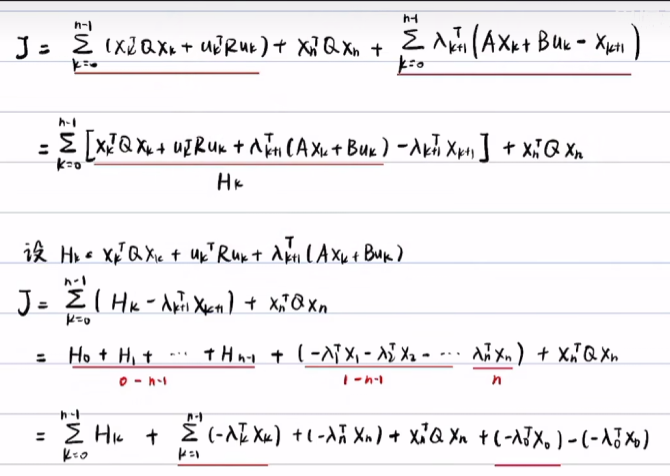 J = \sum_{k=0}^{n-1} (x_k^T Q x_k + u_k^T R u_k) + x_n^T Q x_n + \sum_{k=0}^{n-1} λ_{k+1}^T (A x_k + B u_k - x_{k+1})
= \sum_{k=0}^{n-1} [x_k^T Q x_k + u_k^T R u_k + λ_{k+1}^T (A x_k + B u_k) - λ_{k+1}^T x_{k+1}] + x_n^T Q x_n
H_k
设 H_k = x_k^T Q x_k + u_k^T R u_k + λ_{k+1}^T (A x_k + B u_k)
J = \sum_{k=0}^{n-1} (H_k - λ_{k+1}^T x_{k+1}) + x_n^T Q x_n
= H_0 + H_1 + ⋯ + H_{n-1} + (-λ_1^T x_1 - λ_2^T x_2 - ⋯ λ_n^T x_n) + x_n^T Q x_n
0 - n-1 1 - n-1 n
= \sum_{k=0}^{n-1} H_k + \sum_{k=1}^{n-1} (-λ_k^T x_k) + (-λ_n^T x_n) + x_n^T Q x_n + (-λ_0^T x_0) - (-λ_0^T x_0)